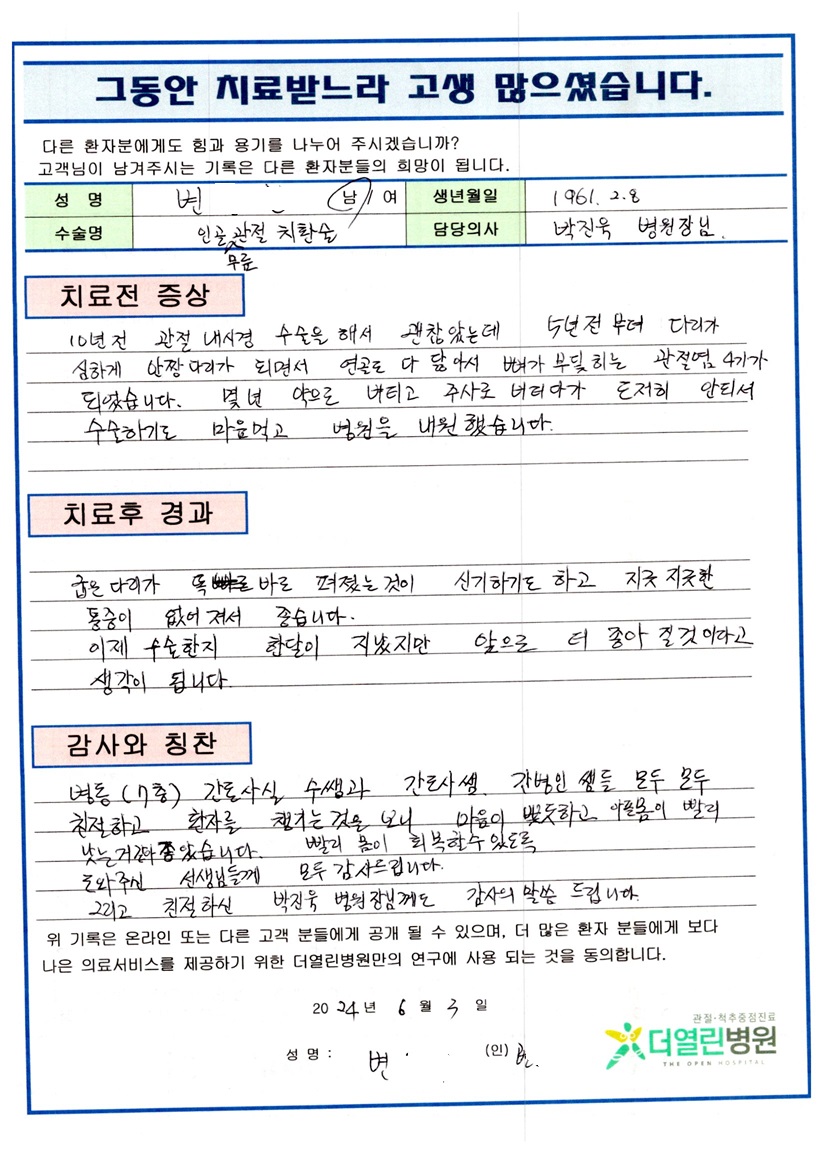 그동안 치료받느라 고생 많으셨습니다.
다른 환자분에게도 힘과 용기를 나누어 주시겠습니까?
고객님이 남겨주시는 기록은 다른 환자분들의 희망이 됩니다.
성 명 변 남 / 여 생년월일 1961. 2. 8
수술명 인공관절 치환술 담당의사 박진욱 병원장님.
무릎
치료전 증상
10년전 관절 내시경 수술을 해서 괜찮았는데 5년전 부터 다리가
심하게 안짱다리가 되면서 연골도 다 닳아서 뼈가 부딪히는 관절염 4기가
되었습니다. 몇년 약으로 버티고 주사로 버티다가 도저히 안되서
수술하기로 마음먹고 병원을 내원했습니다.
치료후 경과
굽은 다리가 똑 바로 펴졌는것이 신기하기도 하고 지긋지긋한
통증이 없어져서 좋습니다.
이제 수술한지 한달이 지났지만 앞으로 더 좋아질것이다고
생각이 됩니다.
감사와 칭찬
병동(7층) 간호사실 수쌤과 간호사쌤. 간병인 쌤들 모두 모두
친절하고 환자를 챙기는것을 보니 마음이 따뜻하고 아픈몸이 빨리
낫는거 좋았습니다. 빨리 몸이 회복할수있도록
도와주신 선생님들께 모두 감사드립니다.
그리고 친절하신 박진욱 병원장님께도 감사의 말씀 드립니다.
위 기록은 온라인 또는 다른 고객 분들에게 공개 될 수 있으며, 더 많은 환자 분들에게 보다
나은 의료서비스를 제공하기 위한 더열린병원만의 연구에 사용 되는 것을 동의합니다.
2024년 6월 3일
성명 : 변 (인) 변.
관절·척추중점진료
더열린병원
THE OPEN HOSPITAL